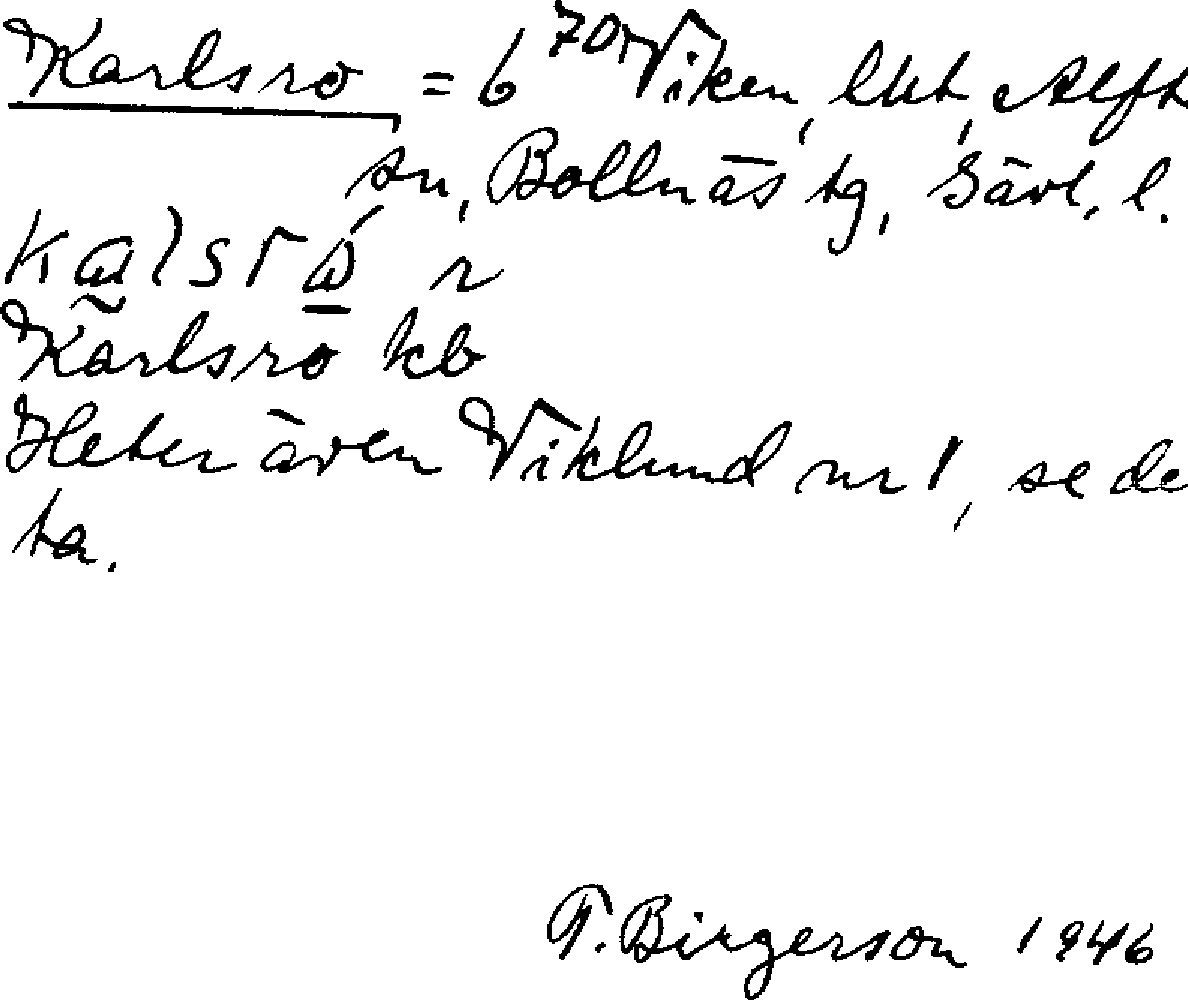 Karlsro = 6⁷⁰ Viken, lht, Alft
sn, Bollnäs tg, Gävl. l.
Karlsro kb
Heter även Viklund nr 1, se de
ta.
T. Birgerson 1946